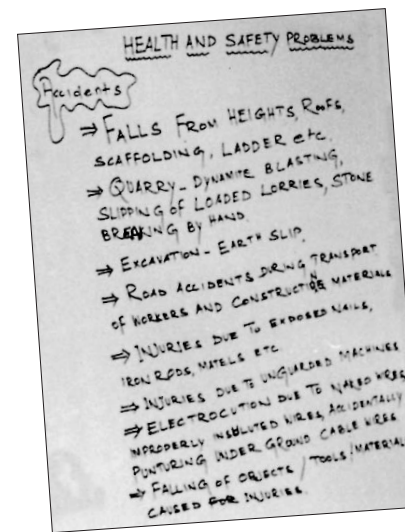 HEALTH AND SAFETY PROBLEMS
Accidents
⇒ FALLS FROM HEIGHTS, ROOFS,
SCAFFOLDING, LADDER etc.
⇒ QUARRY - DYNAMITE BLASTING,
SLIPPING OF LOADED LORRIES, STONE
BREAKING BY HAND.
⇒ EXCAVATION - EARTH SLIP.
⇒ ROAD ACCIDENTS DURING TRANSPORT
OF WORKERS AND CONSTRUCTION MATERIALS
⇒ INJURIES DUE TO EXPOSED NAILS,
IRON RODS, MATELS ETC.
⇒ INJURIES DUE TO UNGUARDED MACHINES
⇒ ELECTROCUTION DUE TO NAKED WIRES,
IMPROPERLY INSULUTED WIRES, ACCIDENTALLY
PUNTURING UNDER GROUND CABLE WIRES
⇒ FALLING OF OBJECTS / TOOLS / MATERIAL
CAUSED FOR INJURIES.